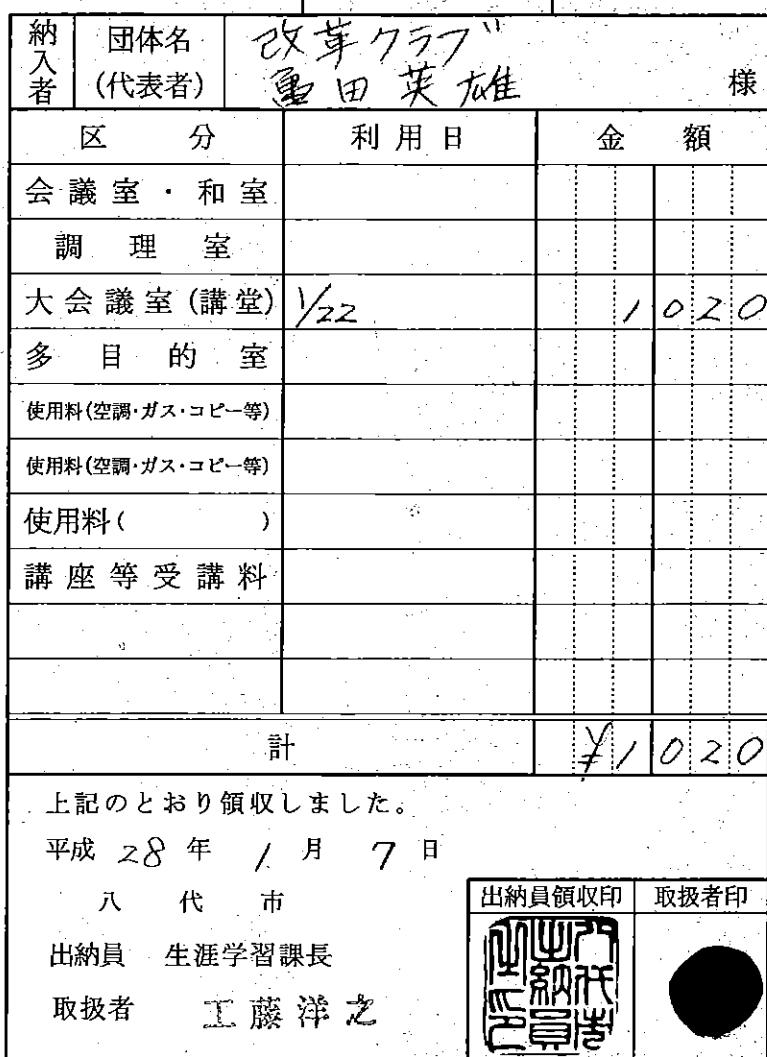 納入者 団体名(代表者) 改革クラブ 亀田英雄 様
区分 利用日 金額
会議室・和室
調理室
大会議室(講堂) 1/22 1020
多目的室
使用料(空調・ガス・コピー等)
使用料(空調・ガス・コピー等)
使用料( )
講座等受講料
計 ¥1020
上記のとおり領収しました。
平成 28 年 1 月 7 日
八代市
出納員領収印 取扱者印
出納員 生涯学習課長
取扱者 工藤洋之